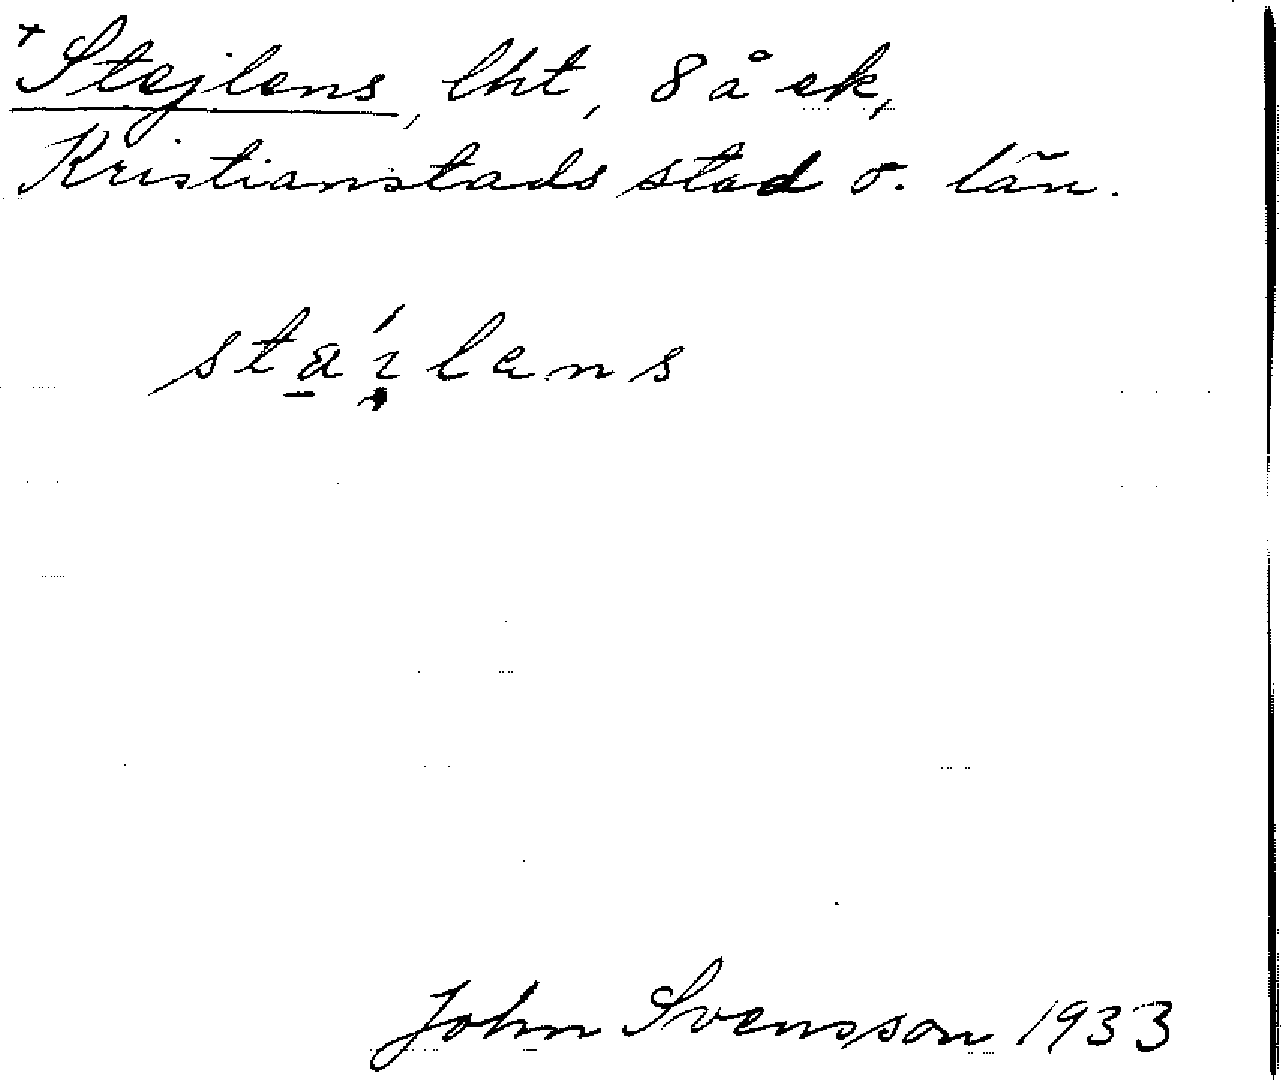 +Stejlens, lht, 8 å ek,
Kristianstads stad o. län.
sta̱í̯lens
John Svensson 1933